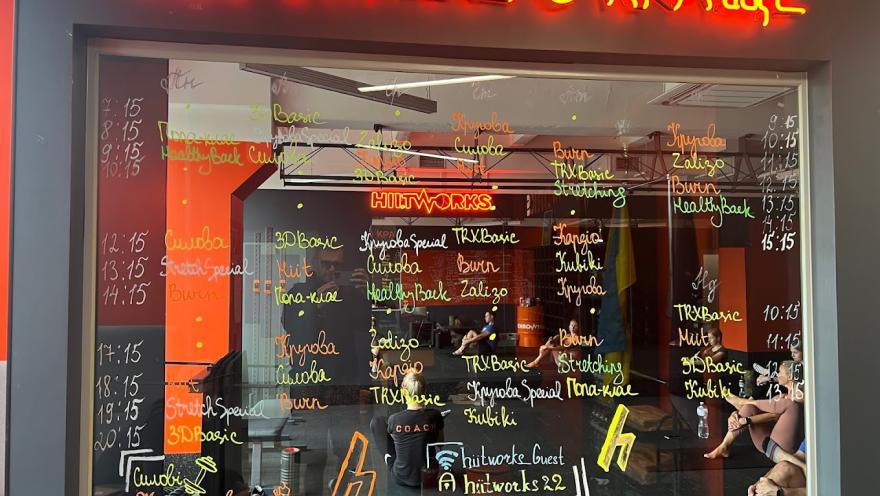 Пн
7:15
8:15
9:15
10:15
3DBasic
КруговаSpecial
Попа-клас
HealthyBack Силова
Zалізо
3DBasic
Кругова
Силова
Burn
TRXBasic
Stretching
Кругова
Zалізо
Burn
HealthyBack
9:15
10:15
11:15
12:15
13:15
14:15
15:15
HIITWORKS.
12:15 Силова 3DBasic КруговаSpecial TRXBasic Кардіо
13:15 StretchSpecial Hiit Силова Burn Kubiki
14:15 Burn Попа-клас HealthyBack Zалізо Кругова
Нд
10:15
11:15
12:15
13:15
TRXBasic
Hiit
3DBasic
Kubiki
17:15 Кругова Zалізо Burn
18:15 Силова Кардіо TRXBasic Stretching
19:15 StretchSpecial Burn TRXBasic КруговаSpecial Попа-клас
20:15 3DBasic Kubiki
COACH
Силові
hiitworks_Guest
hiitworks22